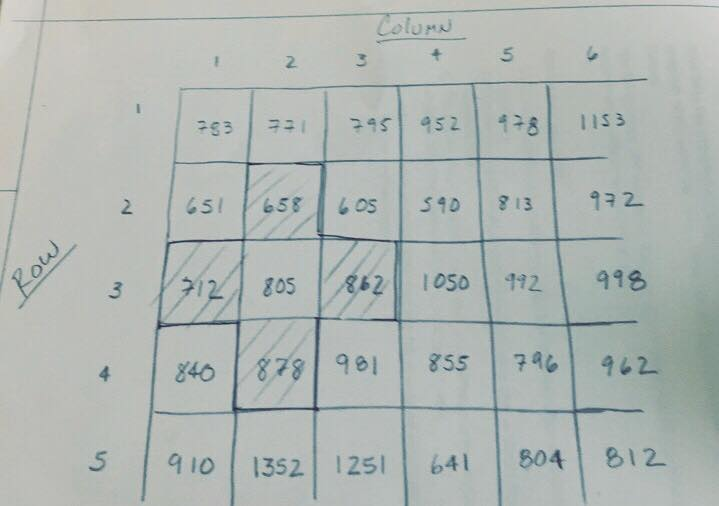 Column
1 2 3 4 5 6
1 783 771 795 952 978 1153
2 651 658 605 590 813 972
Row
3 712 805 862 1050 992 998
4 840 878 981 855 796 962
5 910 1352 1251 641 804 812